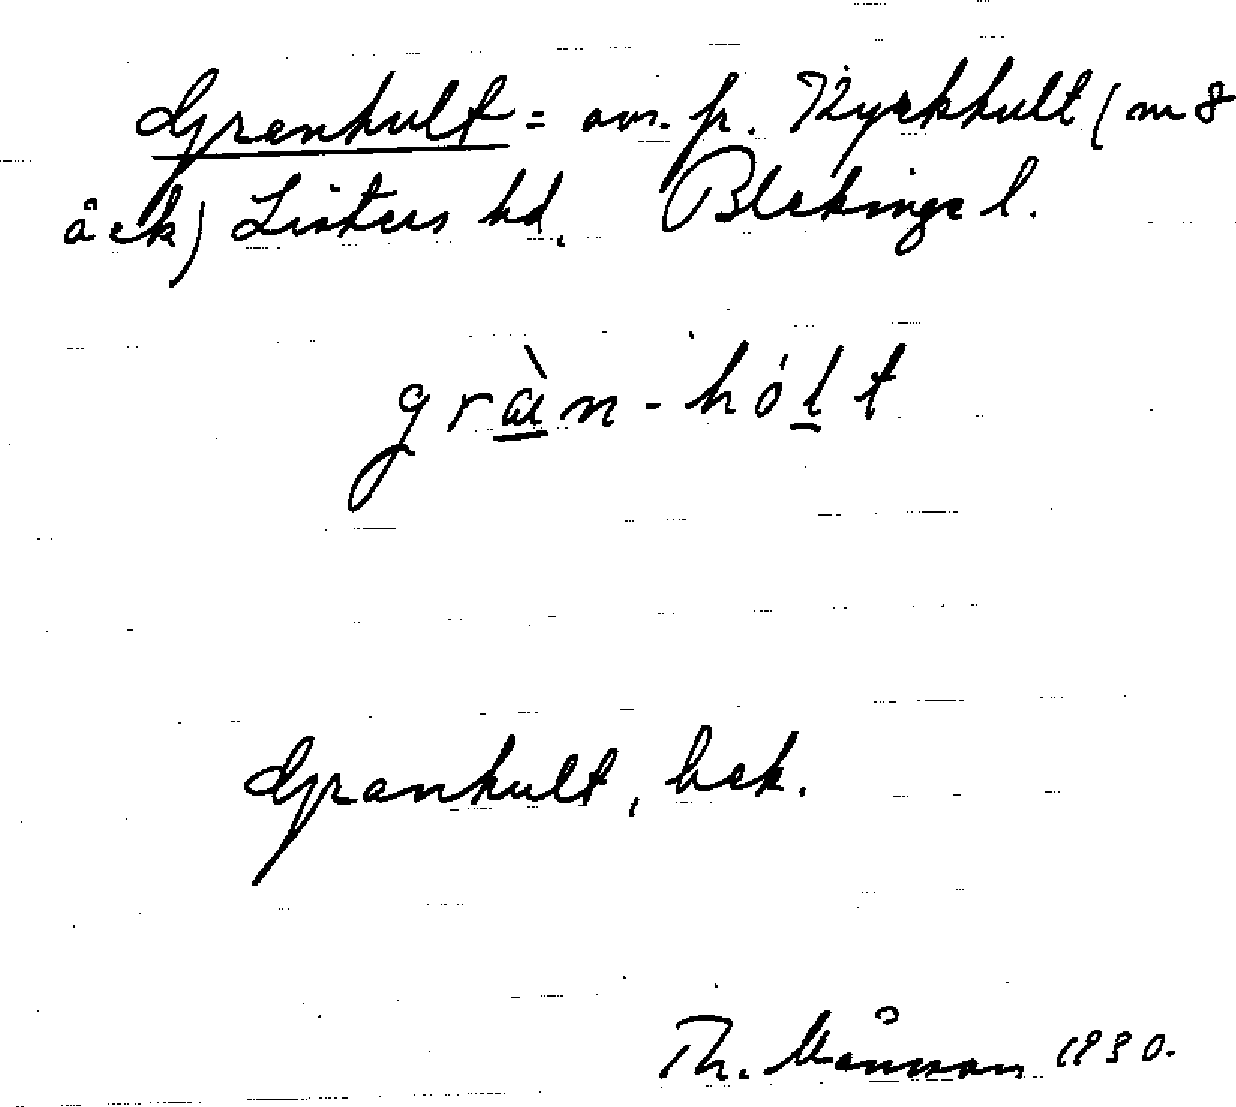 Grenhult = avs. fr. Kyrkhult (m &
åck) Listers hd. Blekinge l.
gràn-hólt
Granhult, bek.
Th. Månsson 1930.